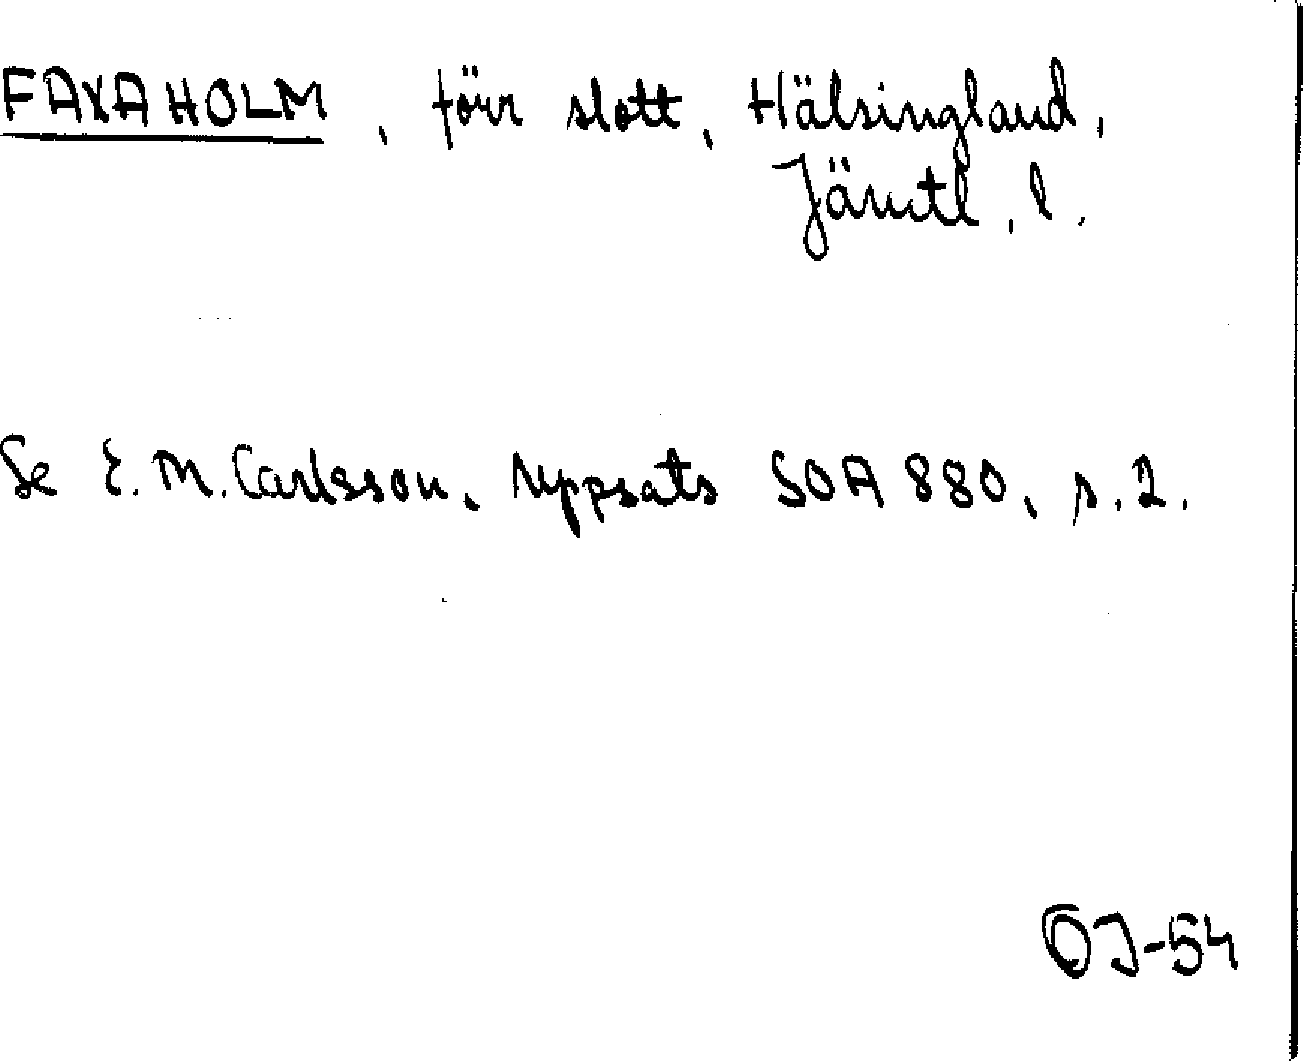 FAXAHOLM, förr slott, Hälsingland,
Jämtl. l.
Se E. M. Carlsson, Uppsats SOA 880, s. 2.
ÖJ-54